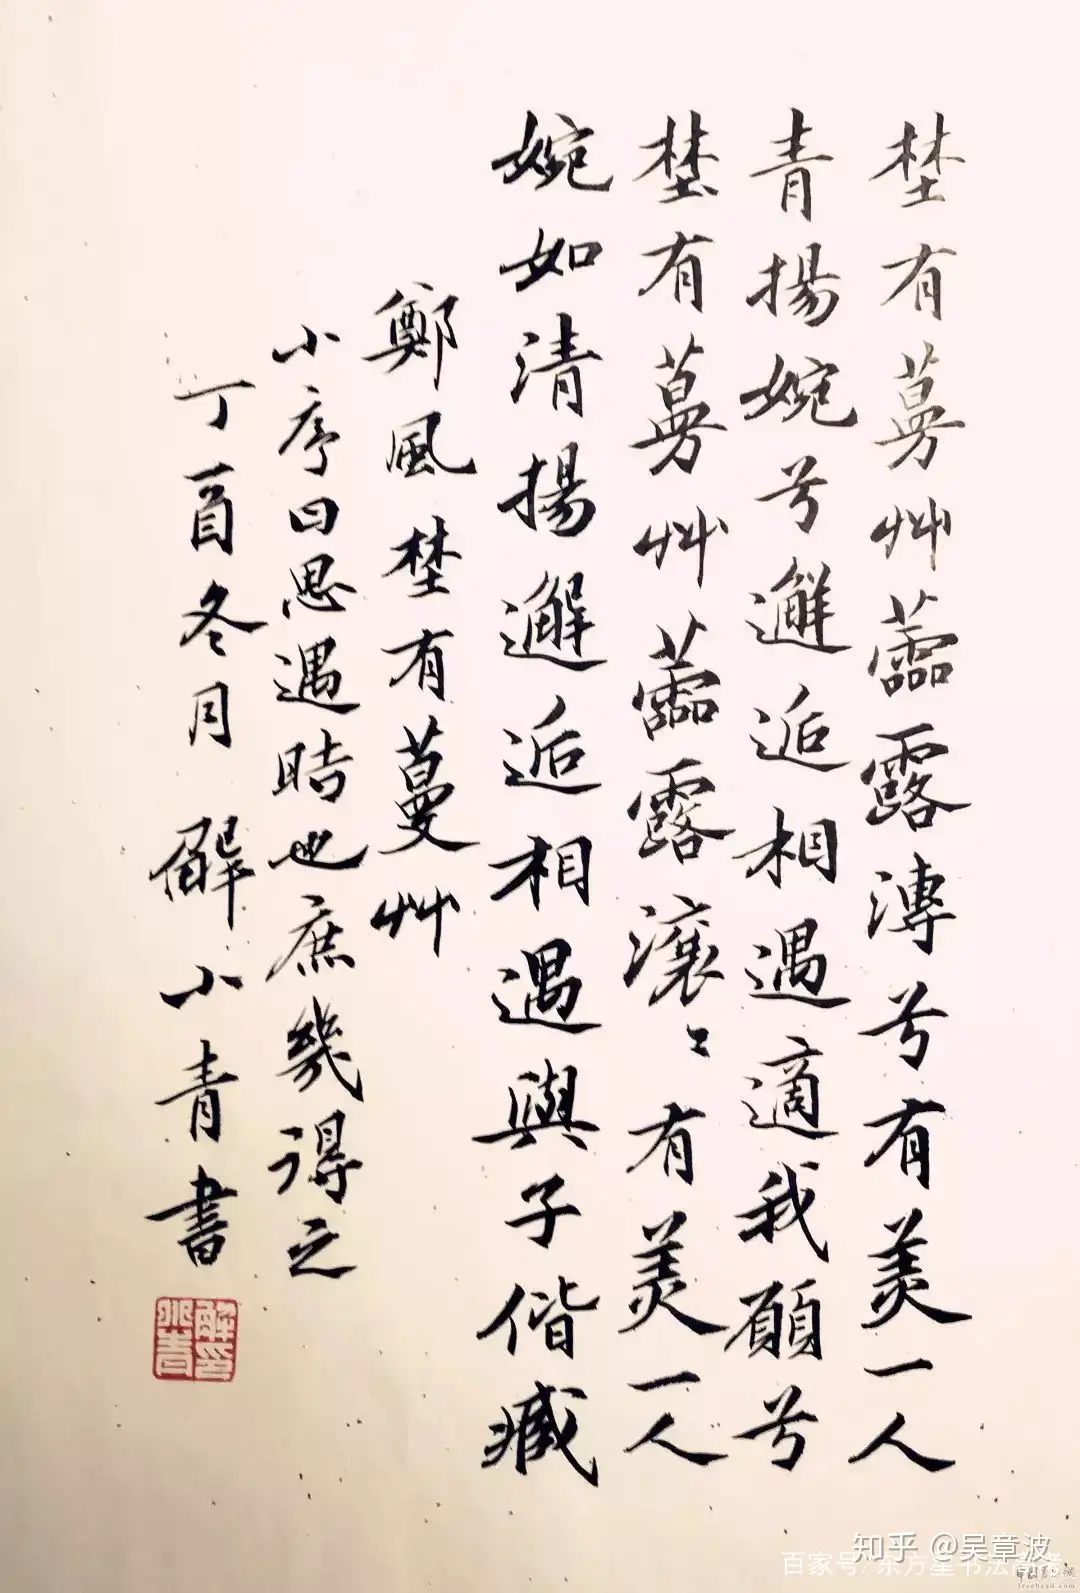 埜有蔓艸蘦露漙兮有美一人
青揚婉兮邂逅相遇適我願兮
埜有蔓艸蘦露瀼〻有美一人
婉如清揚邂逅相遇與子偕臧
鄭風埜有蔓艸
小序曰思遇時也庶幾得之
丁酉冬月 解小青書
知乎 @吴章波
百家号/东方星书法高考
freehead.com